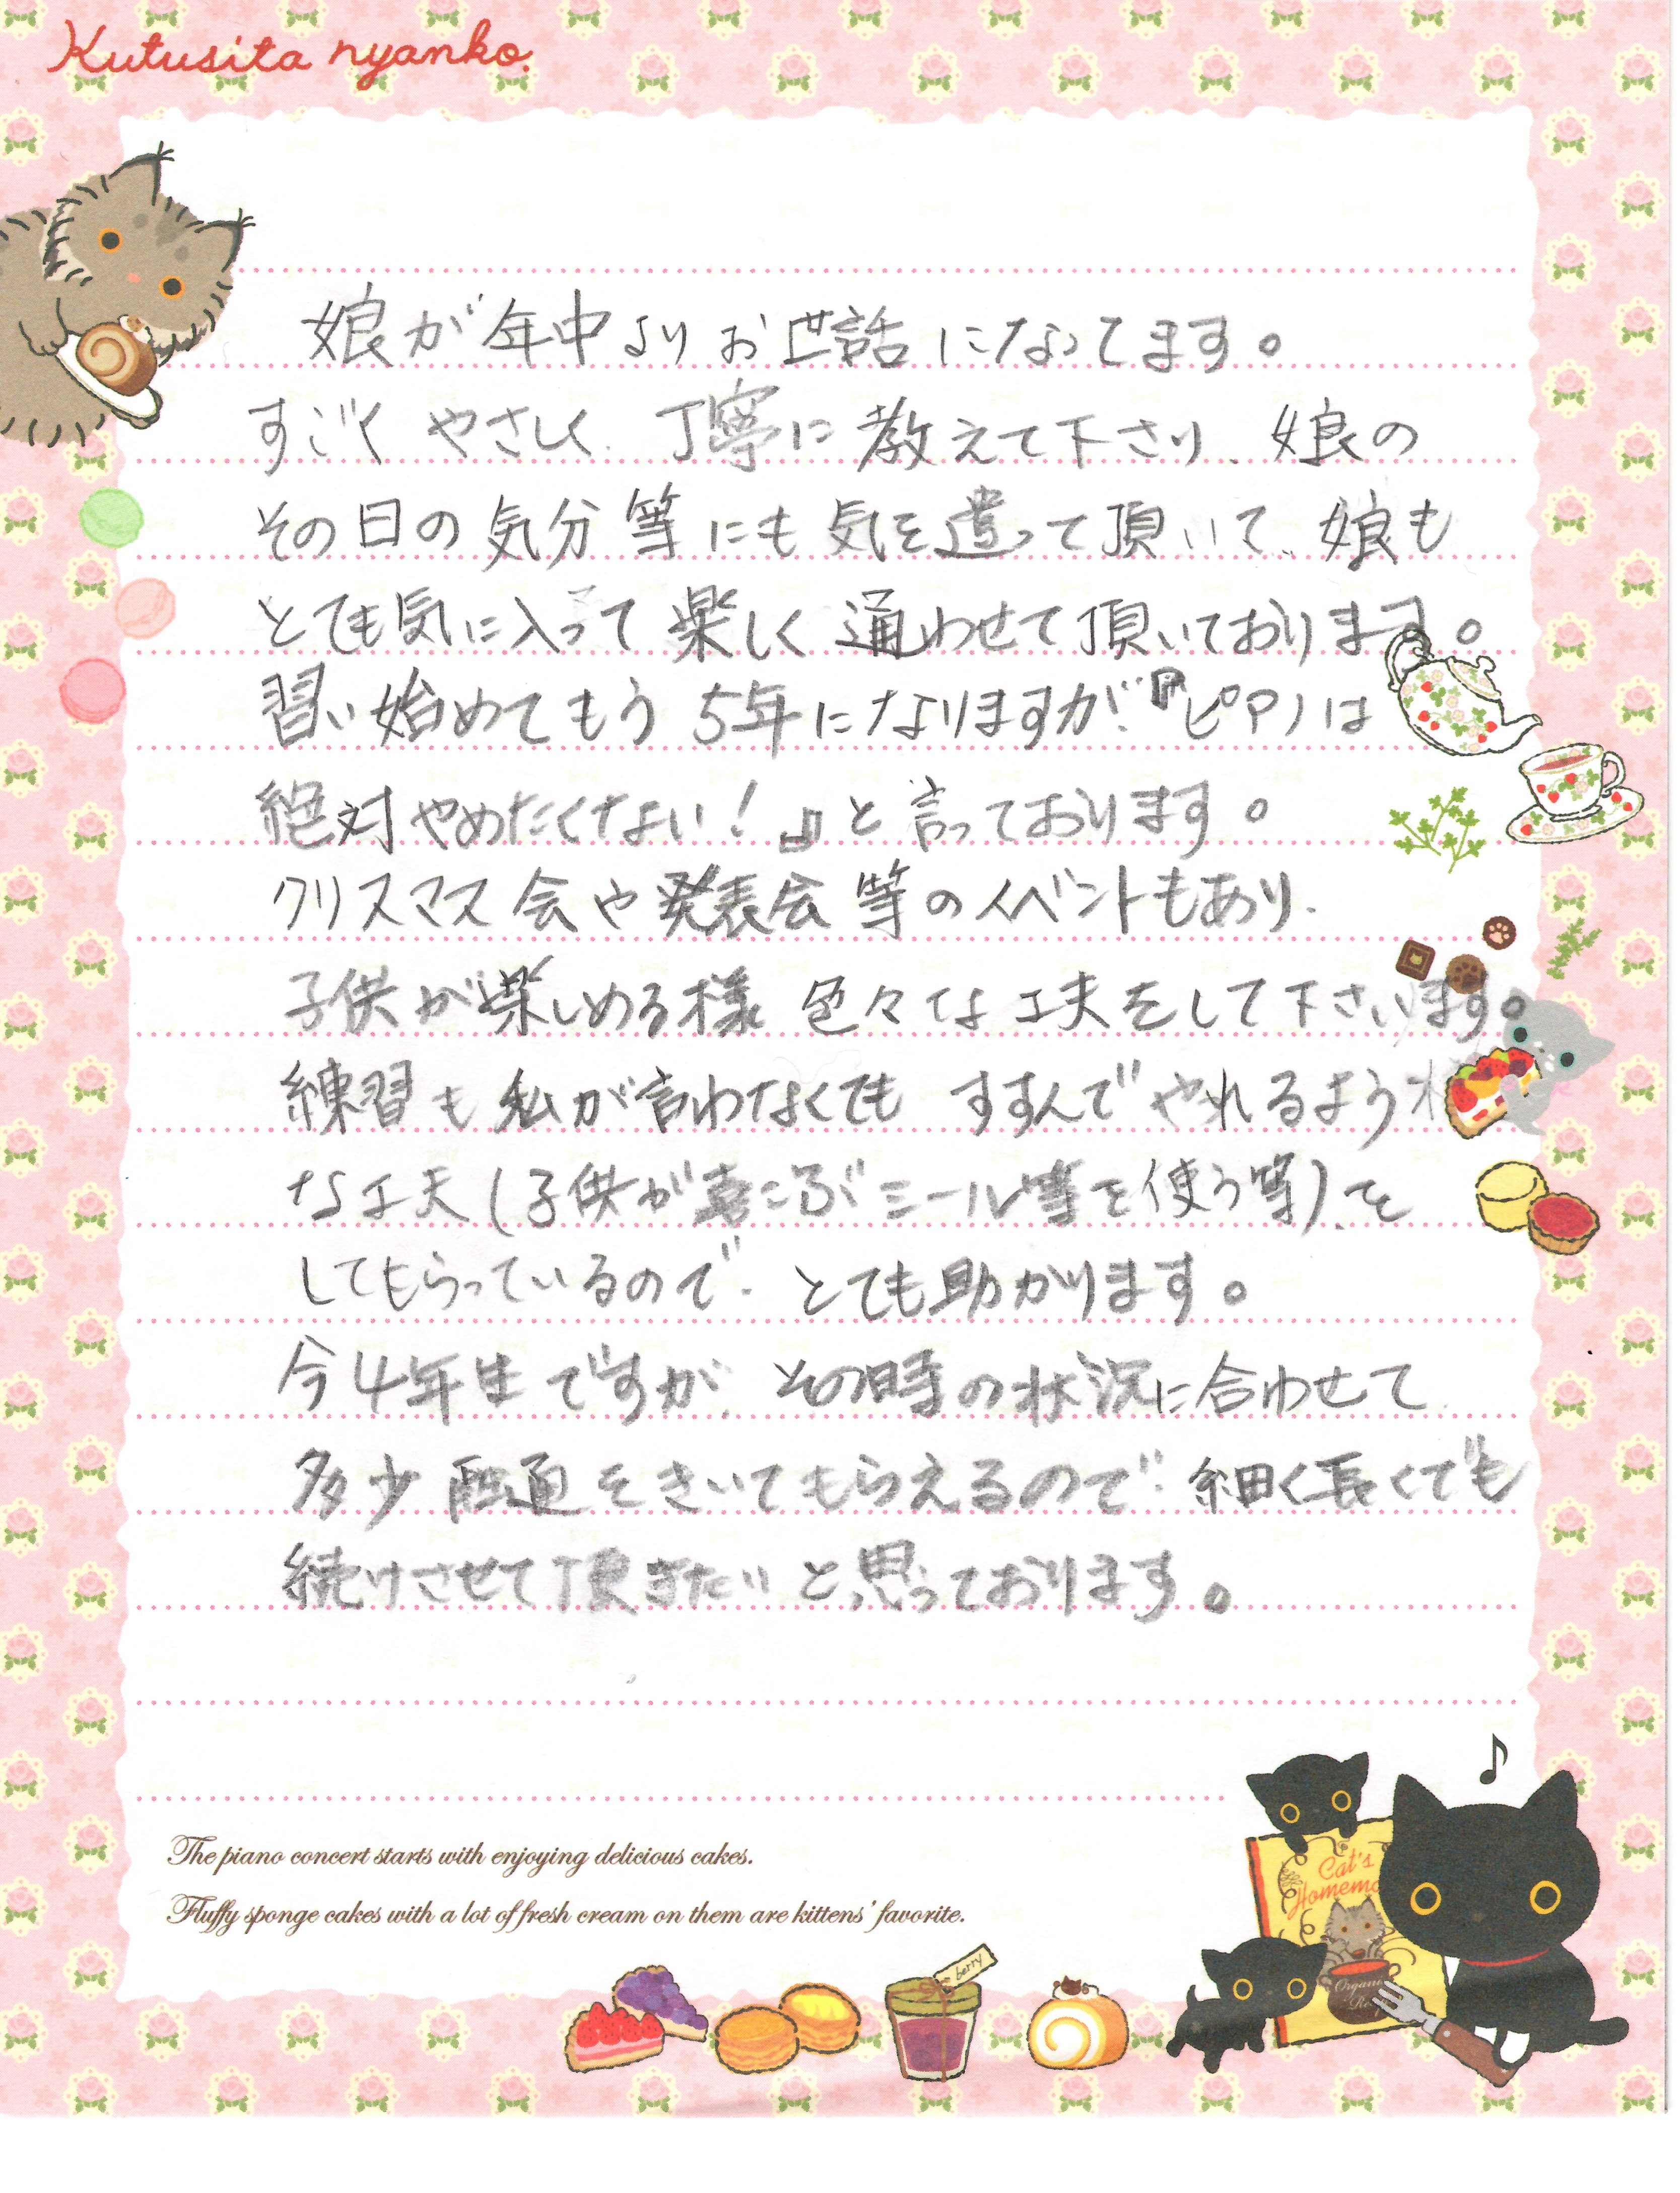 Kutusita nyanko.
娘が年中よりお世話になってます。
すごく やさしく、丁寧に教えて下さり、娘の
その日の気分等にも気を遣って頂いて、娘も
とても気に入って楽しく通わせて頂いております。
習い始めてもう5年になりますが、『ピアノは
絶対やめたくない!』と言っております。
クリスマス会や発表会等のイベントもあり、
子供が楽しめる様 色々な工夫をして下さいます。
練習も私が言わなくても すすんでやれるよう
な工夫(子供が喜こぶシール等を使う等)、を
してもらっているので、とても助かります。
今4年生ですが、その時の状況に合わせて
多少融通をきいてもらえるので、細く長くでも
続けさせて頂きたいと思っております。
The piano concert starts with enjoying delicious cakes.
Fluffy sponge cakes with a lot of fresh cream on them are kittens' favorite.
berry
Cat's
Homema
Organi